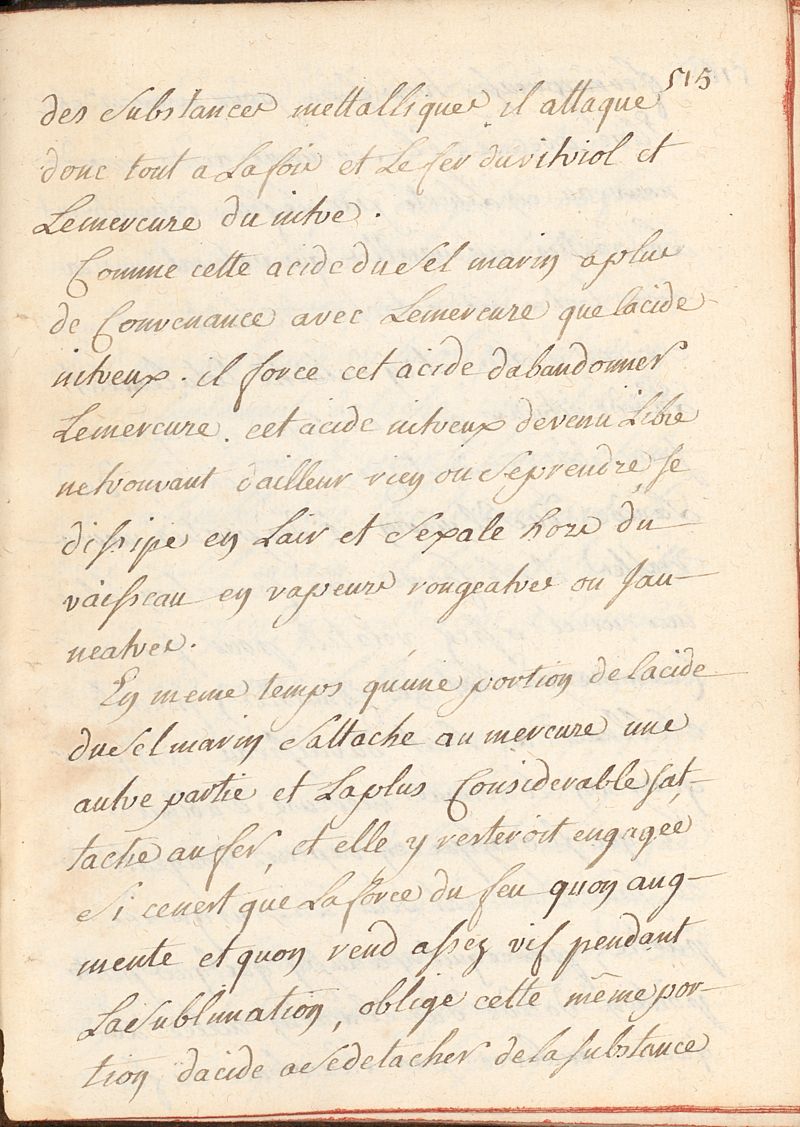 515
des substances mettalliques il attaque
donc tout a Lafois et Lefer duvitriol et
Lemercure du nitre.
Comme cette acide du Sel marin aplus
de Convenance avec Lemercure que lacide
nitreux. il force cet acide dabandonner
Lemercure. cet acide nitreux devenu Libre
netrouvant d'ailleur rien ou Seprendre, se
dissipe en Lair et Sexale hors du
vaisseau en vapeurs rougeatres ou jau-
neatres.
En meme temps qu'une portion de lacide
du Sel marin Sattache au mercure une
autre partie et Laplus Considerable sat-
tache au fer, et elle y resteroit engagée
Si cenest que Laforce du feu quon aug-
mente et quon rend assez vif pendant
La Sublimation, oblige cette même por-
tion dacide a Sedetacher de la substance